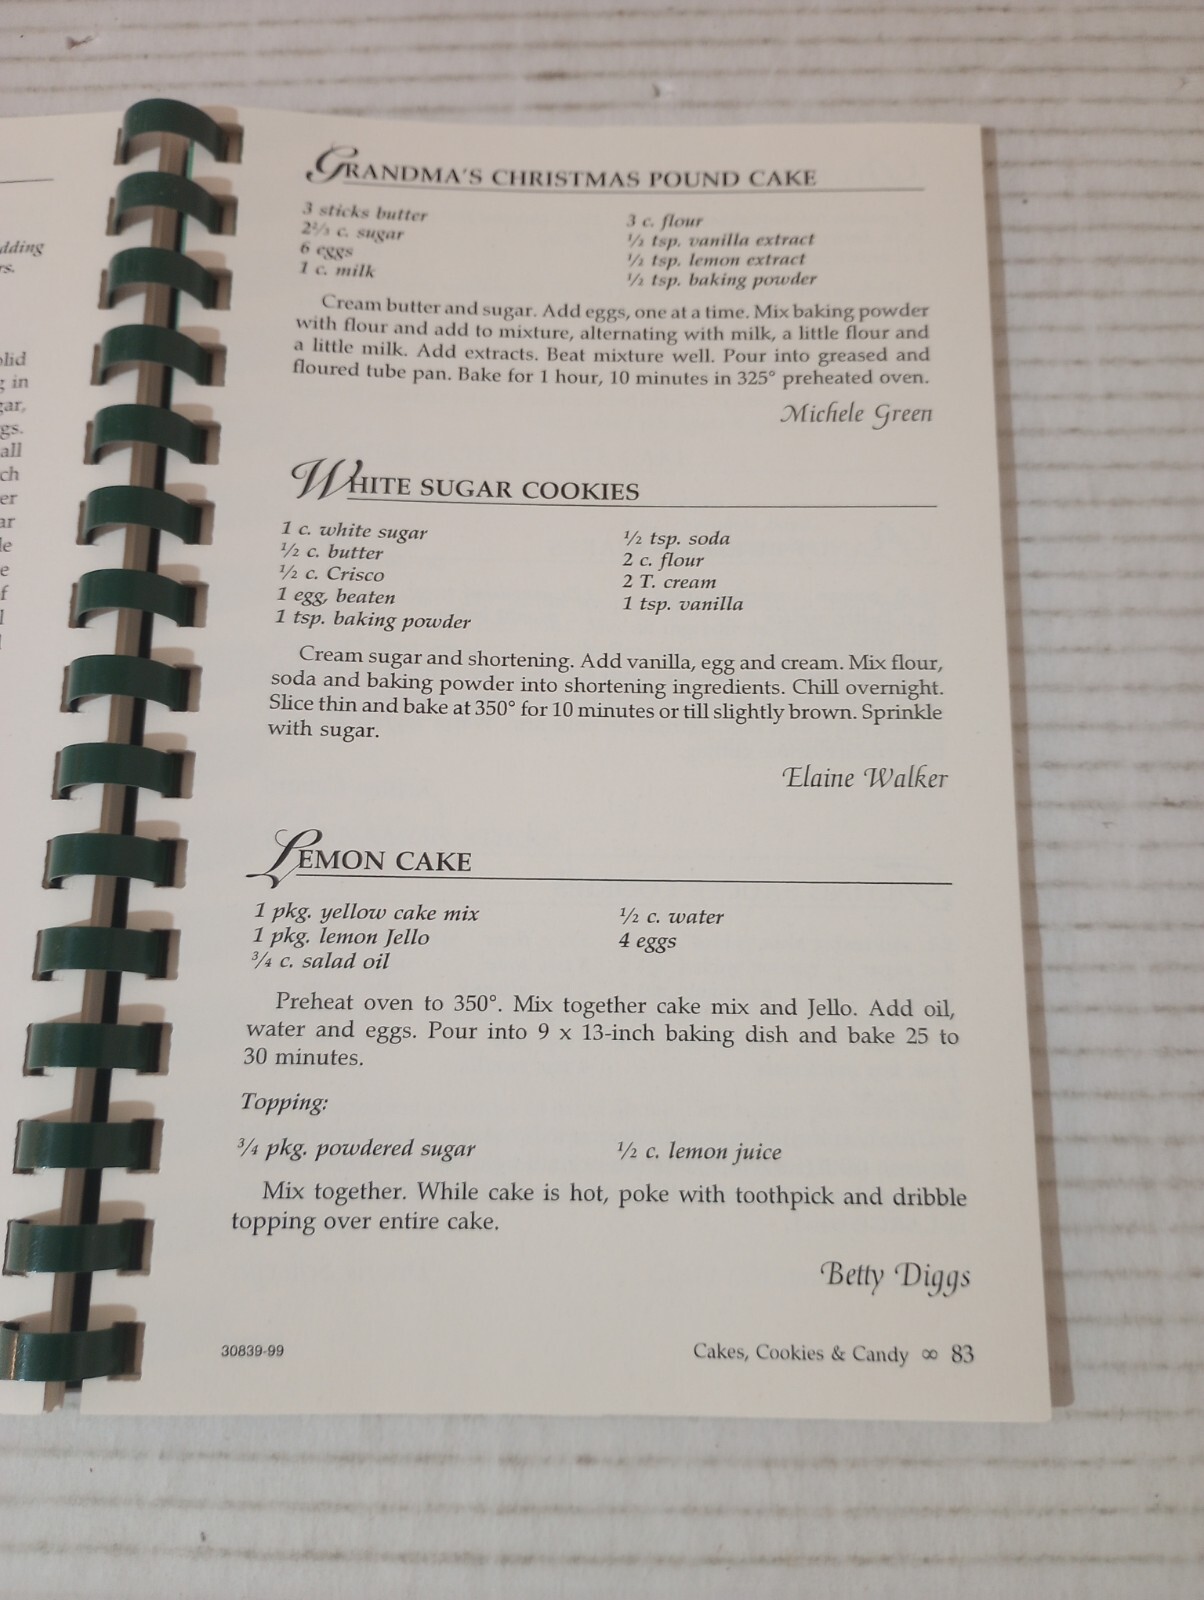 dding
rs.
olid
g in
gar,
gs.
all
ch
er
ar
le
e
f
l
GRANDMA'S CHRISTMAS POUND CAKE
3 sticks butter
2⅔ c. sugar
6 eggs
1 c. milk
3 c. flour
½ tsp. vanilla extract
½ tsp. lemon extract
½ tsp. baking powder
Cream butter and sugar. Add eggs, one at a time. Mix baking powder
with flour and add to mixture, alternating with milk, a little flour and
a little milk. Add extracts. Beat mixture well. Pour into greased and
floured tube pan. Bake for 1 hour, 10 minutes in 325° preheated oven.
Michele Green
WHITE SUGAR COOKIES
1 c. white sugar
½ c. butter
½ c. Crisco
1 egg, beaten
1 tsp. baking powder
½ tsp. soda
2 c. flour
2 T. cream
1 tsp. vanilla
Cream sugar and shortening. Add vanilla, egg and cream. Mix flour,
soda and baking powder into shortening ingredients. Chill overnight.
Slice thin and bake at 350° for 10 minutes or till slightly brown. Sprinkle
with sugar.
Elaine Walker
LEMON CAKE
1 pkg. yellow cake mix
1 pkg. lemon Jello
¾ c. salad oil
½ c. water
4 eggs
Preheat oven to 350°. Mix together cake mix and Jello. Add oil,
water and eggs. Pour into 9 x 13-inch baking dish and bake 25 to
30 minutes.
Topping:
¾ pkg. powdered sugar
½ c. lemon juice
Mix together. While cake is hot, poke with toothpick and dribble
topping over entire cake.
Betty Diggs
30839-99
Cakes, Cookies & Candy ∞ 83